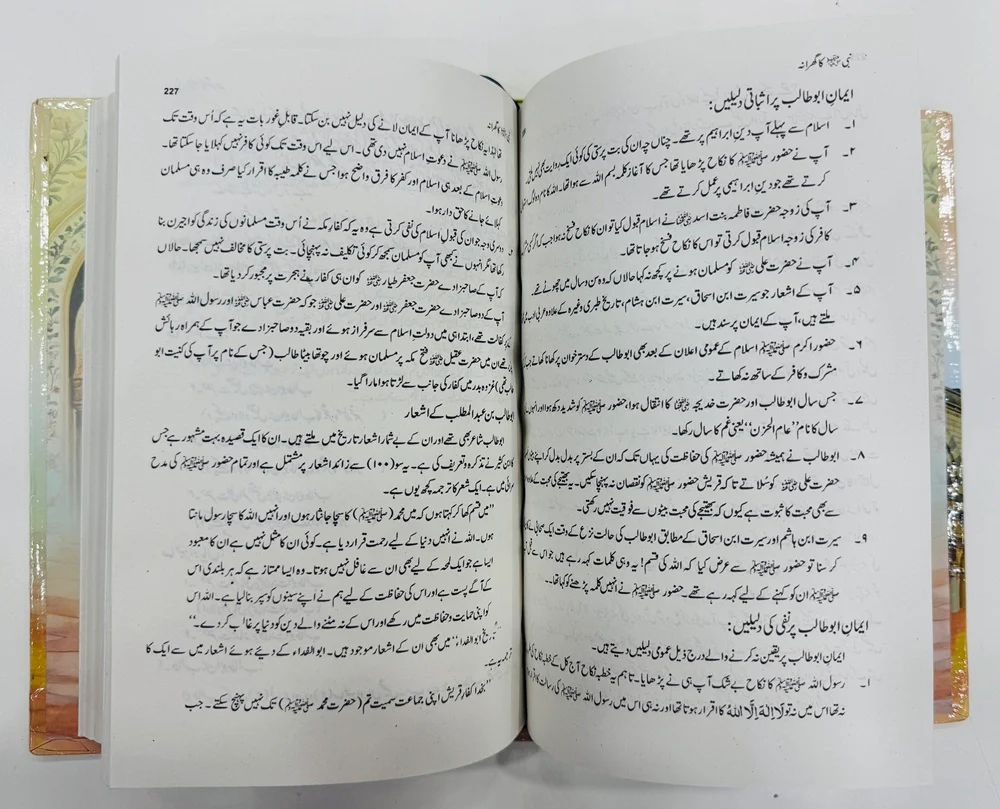 نبی ﷺ کا گھرانہ
ایمانِ ابوطالب پر اثباتی دلیلیں:
۱۔ اسلام سے پہلے آپ دینِ ابراہیم پر تھے۔ چناں چہ ان کی بت پرستی کی کوئی ایک روایت بھی نہیں
۲۔ آپ نے حضور ﷺ کا نکاح پڑھایا تھا جس کا آغاز کلمہ بسم اللہ سے ہوا تھا۔ اللہ کا نام وہ لوگ
کرتے تھے جو دینِ ابراہیمی پر عمل کرتے تھے۔
۳۔ آپ کی زوجہ حضرت فاطمہ بنت اسد ؓ نے اسلام قبول کیا تو ان کا نکاح فسخ نہ ہوا جب کہ اگر کسی
کافر کی زوجہ اسلام قبول کرتی تو اس کا نکاح فسخ ہو جاتا تھا۔
۴۔ آپ نے حضرت علی ؓ کو مسلمان ہونے پر کچھ نہ کہا حالاں کہ وہ سن و سال میں چھوٹے تھے۔
۵۔ آپ کے اشعار جو سیرت ابن اسحاق، سیرت ابن ہشام، تاریخ طبری وغیرہ کے علاوہ عربی ادب
ملتے ہیں، آپ کے ایمان پر سند ہیں۔
۶۔ حضور اکرم ﷺ اسلام کے عمومی اعلان کے بعد بھی ابوطالب کے دسترخوان پر کھانا کھاتے
مشرک و کافر کے ساتھ نہ کھاتے۔
۷۔ جس سال ابوطالب اور حضرت خدیجہ ؓ کا انتقال ہوا، حضور ﷺ کو شدید دکھ ہوا اور انہوں
سال کا نام ’’عام الحزن‘‘ یعنی غم کا سال رکھا۔
۸۔ ابوطالب نے ہمیشہ حضور ﷺ کی حفاظت کی یہاں تک کہ ان کے بستر پر بدل بدل کر اپنے
حضرت علی ؓ کو سلاتے تاکہ قریش حضور ﷺ کو نقصان نہ پہنچا سکیں۔ یہ بھتیجے کی محبت کے
سے بھی محبت کا ثبوت ہے کیوں کہ بھتیجے کی محبت بیٹوں سے فوقیت نہیں رکھتی۔
۹۔ سیرت ابن ہاشم اور سیرت ابن اسحاق کے مطابق ابوطالب کی حالتِ نزع کے وقت ایک صحابی نے
کر سنا تو حضور ﷺ سے عرض کیا کہ اللہ کی قسم! یہ وہی کلمات کہہ رہے ہیں جو اس سے قبل
ﷺ ان کو کہنے کے لیے کہہ رہے تھے۔ حضور ﷺ نے انہیں کلمہ پڑھنے کو کہا تھا۔
ایمانِ ابوطالب پر نفی کی دلیلیں:
ایمانِ ابوطالب پر یقین نہ کرنے والے درج ذیل عمومی دلیلیں دیتے ہیں۔
۱۔ رسول اللہ ﷺ کا نکاح بے شک آپ ہی نے پڑھایا۔ تاہم یہ خطبہ نکاح آج کل کے خطبہ نکاح کی
نہ تھا اس میں نہ تو لَا اِلٰهَ اِلَّا اللهُ کا اقرار ہوتا تھا اور نہ ہی اس میں رسول اللہ ﷺ کی رسالت کا اقرار
227
نبی ﷺ کا گھرانہ
تھا لہٰذا یہ نکاح پڑھانا آپ کے ایمان لانے کی دلیل نہیں بن سکتا۔ قابلِ غور بات یہ ہے کہ اُس وقت تک
رسول اللہ ﷺ نے دعوتِ اسلام نہیں دی تھی۔ اس لیے اس وقت تک کوئی کافر نہیں کہلایا جا سکتا تھا۔
دعوتِ اسلام کے بعد ہی اسلام اور کفر کا فرق واضح ہوا جس نے کلمہ طیبہ کا اقرار کیا صرف وہ ہی مسلمان
کہلائے جانے کا حق دار ہوا۔
دوسری وجہ جو ان کی قبولِ اسلام کی نفی کرتی ہے وہ یہ کہ کفارِ مکہ نے اُس وقت مسلمانوں کی زندگی کو اجیرن بنا
رکھا تھا مگر انہوں نے کبھی آپ کو مسلمان سمجھ کر کوئی تکلیف نہ پہنچائی۔ بت پرستی کا مخالف نہیں سمجھا۔ حالاں
کہ آپ کے صاحبزادے حضرت جعفر طیار ؓ کو ان ہی کفار نے ہجرت پر مجبور کر دیا تھا۔
آپ کے دو صاحبزادے حضرت جعفر ؓ اور حضرت علی ؓ جو کہ حضرت عباس ؓ اور رسول اللہ ﷺ
کفالت تھے، ابتدا ہی میں دولتِ اسلام سے سرفراز ہوئے اور بقیہ دو صاحبزادے جو آپ کے ہمراہ رہائش
تھے ان میں حضرت عقیل ؓ فتح مکہ پر مسلمان ہوئے اور چوتھا بیٹا طالب (جس کے نام پر آپ کی کنیت ابو
طالب تھی) غزوہ بدر میں کفار کی جانب سے لڑتا ہوا مارا گیا۔
ابوطالب بن عبدالمطلب کے اشعار
ابوطالب شاعر بھی تھے اور ان کے بے شمار اشعار تاریخ میں ملتے ہیں۔ ان کا ایک قصیدہ بہت مشہور ہے جس
کا ابن کثیر نے تذکرہ و تعریف کی ہے۔ یہ سو (۱۰۰) سے زائد اشعار پر مشتمل ہے اور تمام حضور ﷺ کی مدح
سرائی میں ہے۔ ایک شعر کا ترجمہ کچھ یوں ہے۔
’’میں قسم کھا کر کہتا ہوں کہ میں محمد (ﷺ) کا سچا جانثار ہوں اور انہیں اللہ کا سچا رسول مانتا
ہوں۔ اللہ نے انہیں دنیا کے لیے رحمت قرار دیا ہے۔ کوئی ان کا مثل نہیں ہے ان کا معبود
ایسا ہے جو ایک لمحہ کے لیے بھی ان سے غافل نہیں ہوتا۔ وہ ایسا ممتاز ہے کہ ہر بلندی اس
کے آگے پست ہے اور اس کی حفاظت کے لیے ہم نے اپنے سینوں کو سپر بنا لیا ہے۔ اللہ اس
کو اپنی حمایت و حفاظت میں رکھے اور اس کے نہ مٹنے والے دین کو دنیا پر غالب کر دے۔‘‘
’’تاریخ ابوالفداء‘‘ میں بھی ان کے اشعار موجود ہیں۔ ابوالفداء کے دیے ہوئے اشعار میں سے ایک کا
ترجمہ یہ ہے۔
’’بخدا کفارِ قریش اپنی جماعت سمیت تم (حضرت محمد ﷺ) تک نہیں پہنچ سکتے۔ جب